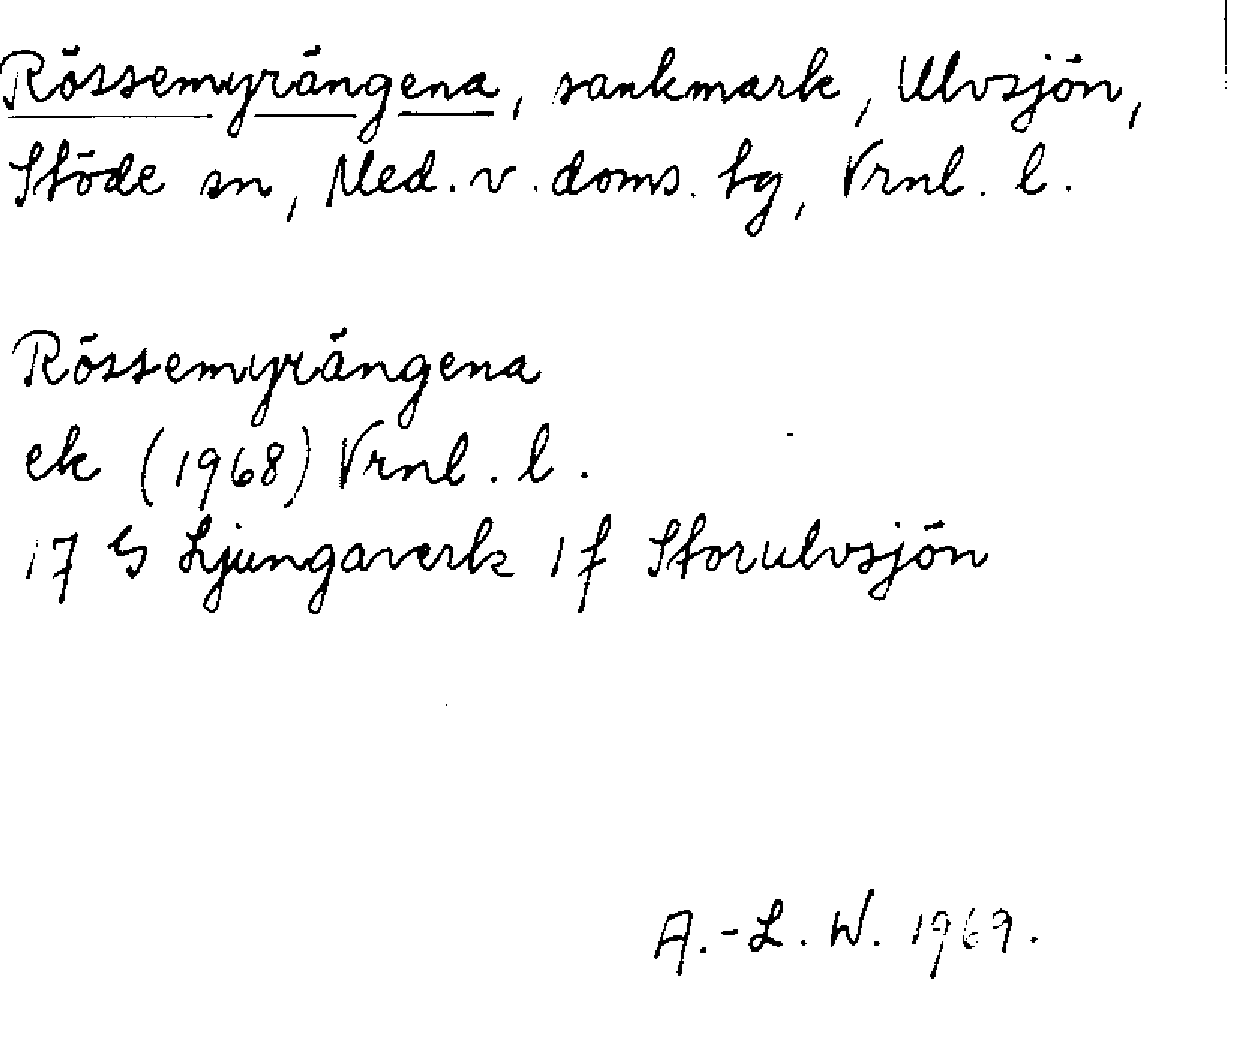 Rössemyrängena, sankmark, Ulvsjön,
Stöde sn, Med. v. doms. tg, Vrnl. l.
Rössemyrängena
ek (1968) Vrnl. l.
17 G Ljungaverk 1 f Storulvsjön
A.-L. W. 1969.